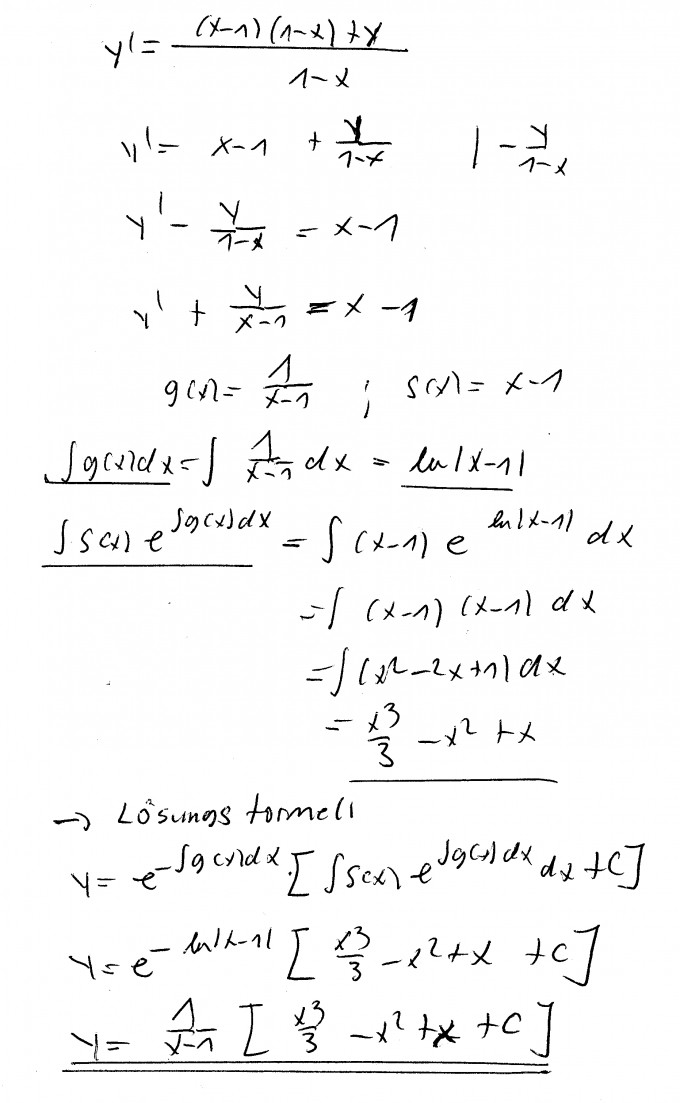 y' = ((x-1)(1-x)+y)/(1-x)
y' = x-1 + y/(1-x) | - y/(1-x)
y' - y/(1-x) = x-1
y' + y/(x-1) = x-1
g(x) = 1/(x-1) ; s(x) = x-1
∫g(x)dx = ∫ 1/(x-1) dx = ln|x-1|
∫s(x) e^(∫g(x)dx) = ∫(x-1) e^(ln|x-1|) dx
= ∫ (x-1) (x-1) dx
= ∫(x²-2x+1) dx
= x³/3 - x² + x
→ Lösungsformel:
y = e^(-∫g(x)dx) · [∫s(x) e^(∫g(x)dx) dx + C]
y = e^(-ln|x-1|) [x³/3 - x² + x + C]
y = 1/(x-1) [x³/3 - x² + x + C]